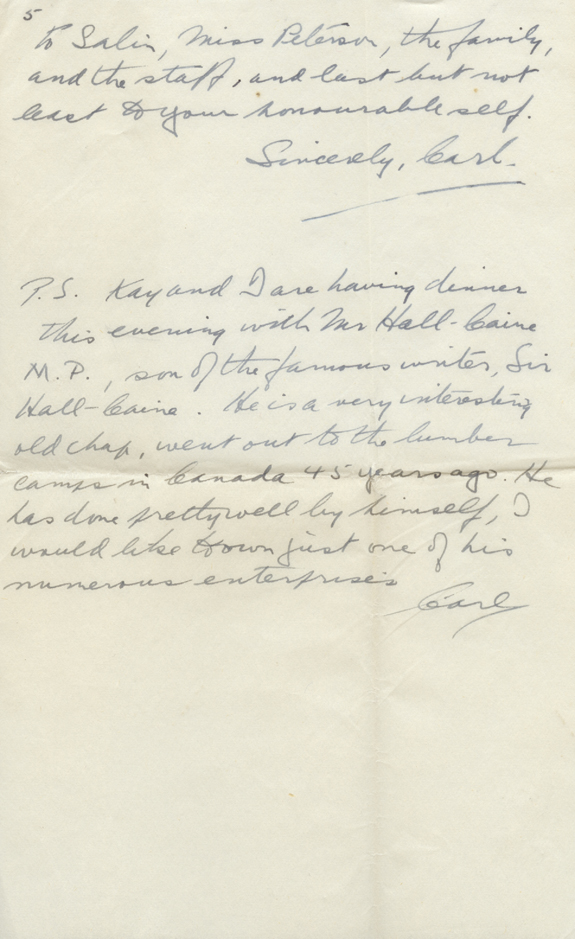 5
to Salin, Miss Peterson, the family,
and the staff, and last but not
least to your honourable self.
Sincerely, Carl.
P.S. Kay and I are having dinner
this evening with Mr Hall-Caine
M.P., son of the famous writer, Sir
Hall-Caine. He is a very interesting
old chap, went out to the lumber
camps in Canada 45 years ago. He
has done pretty well by himself, I
would like to own just one of his
numerous enterprises
Carl